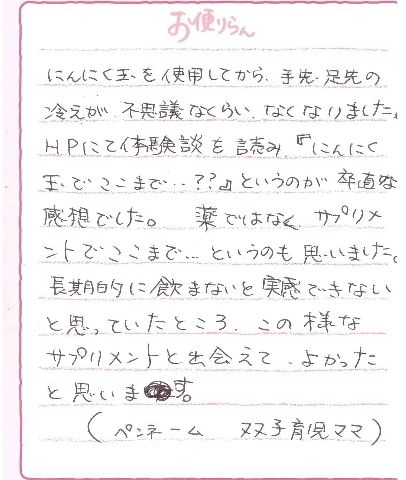 お便りらん
にんにく玉を使用してから、手先、足先の
冷えが、不思議なくらい、なくなりました。
HPにて体験談を読み、『にんにく
玉でここまで…??』というのが率直な
感想でした。 薬ではなく サプリメ
ントでここまで…というのも思いました。
長期的に飲まないと実感できない
と思っていたところ、この様な
サプリメントと出会えて、よかった
と思います。
(ペンネーム 双子育児ママ)